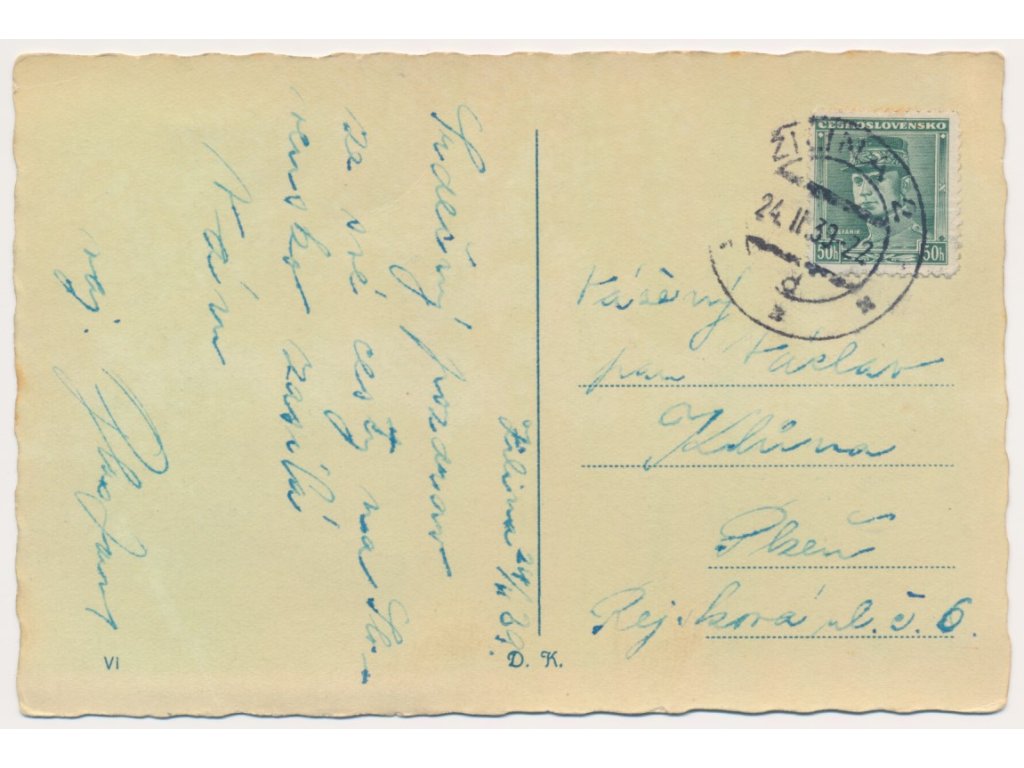 Srdečný pozdrav
ze své cesty na Slo-
vensko zasílá
Vám
Žilina 24/II 39.
VI
D. K.
ČESKOSLOVENSKO
ŠTEFÁNIK
50h 50h
ŽILINA 2
24.II.39-22
d
Vážený
pan Václav
Klůna
Plzeň
Rejskova ul. č. 6.